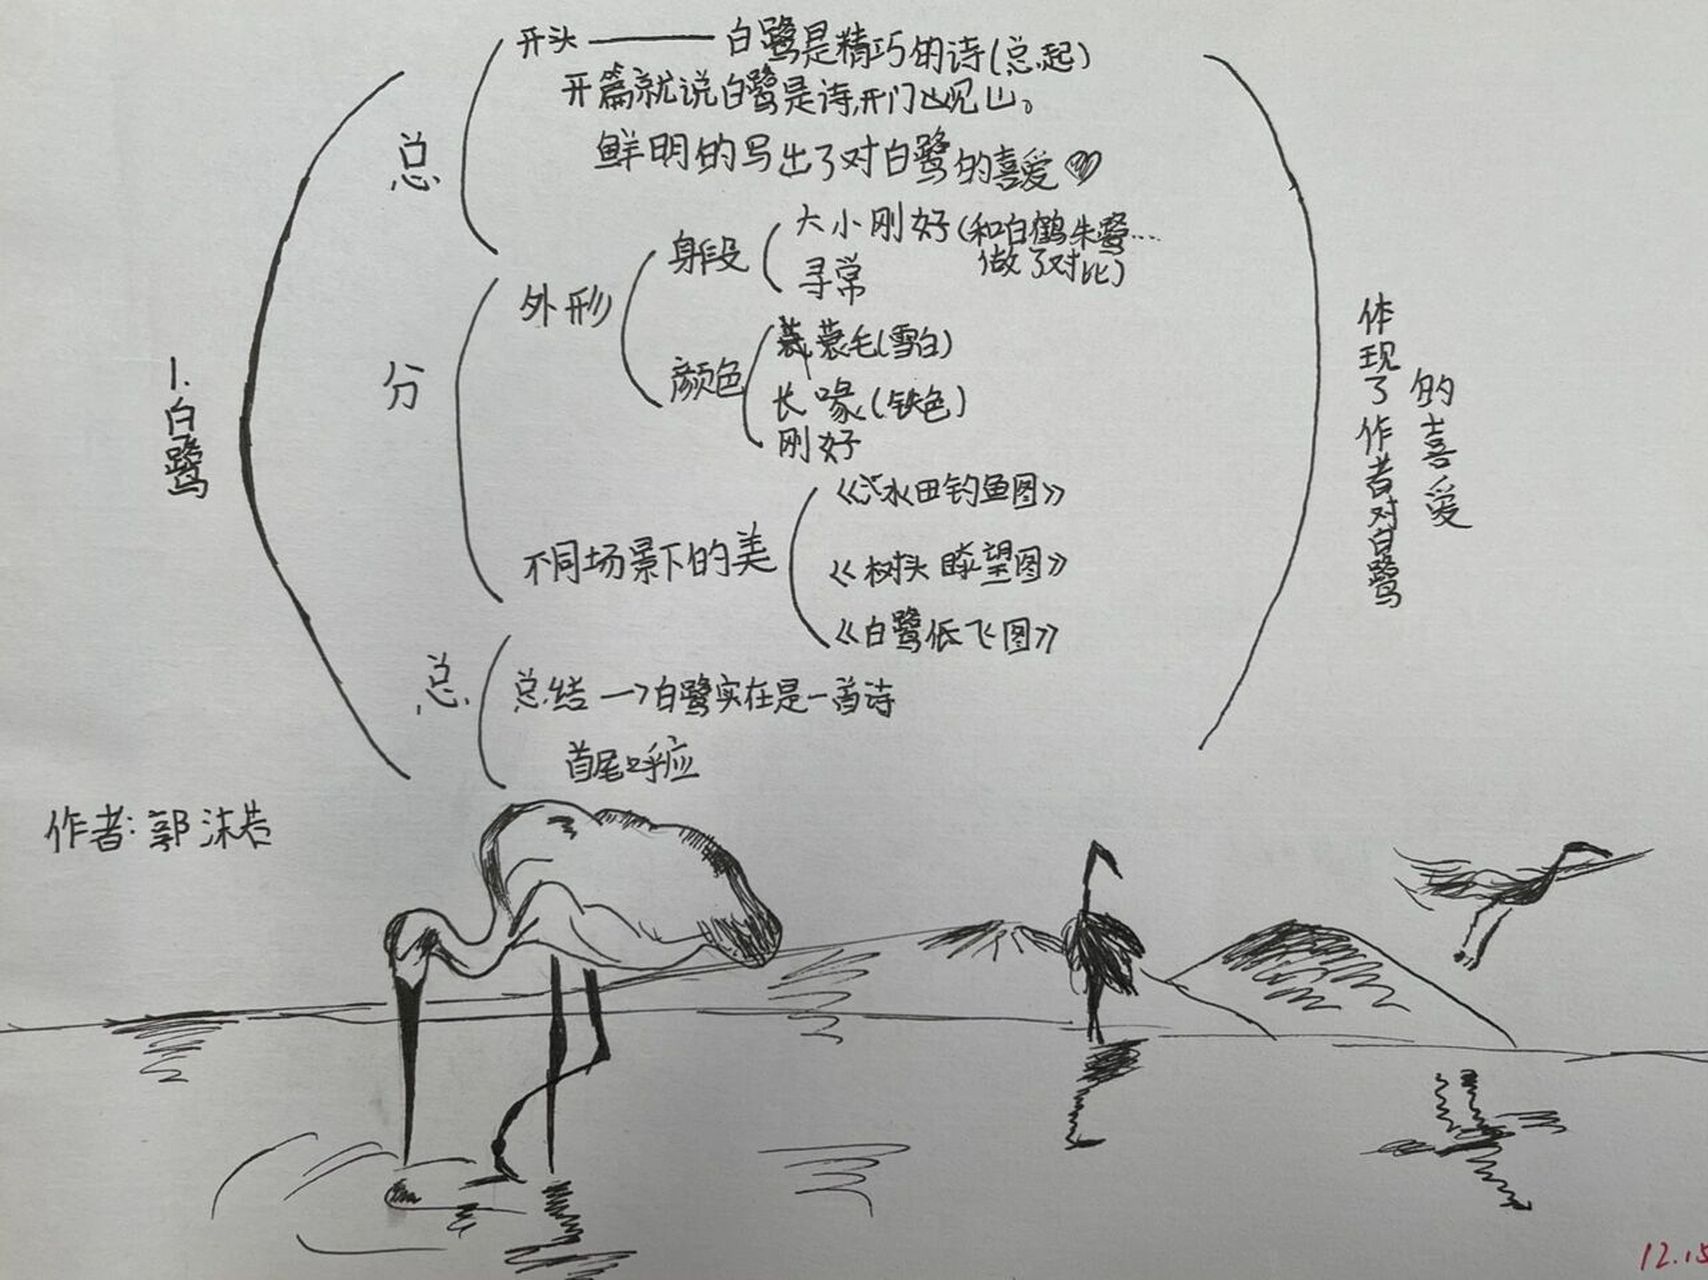 1.白鹭
总
开头——白鹭是精巧的诗(总起)
开篇就说白鹭是诗,开门见山。
鲜明的写出了对白鹭的喜爱
分
外形
身段
大小刚好(和白鹤朱鹭…
做了对比)
寻常
颜色
蓑毛(雪白)
长喙(铁色)
刚好
不同场景下的美
《水田钓鱼图》
《树头瞭望图》
《白鹭低飞图》
总
总结→白鹭实在是一首诗
首尾呼应
体现了作者对白鹭
的喜爱
作者:郭沫若
12.15